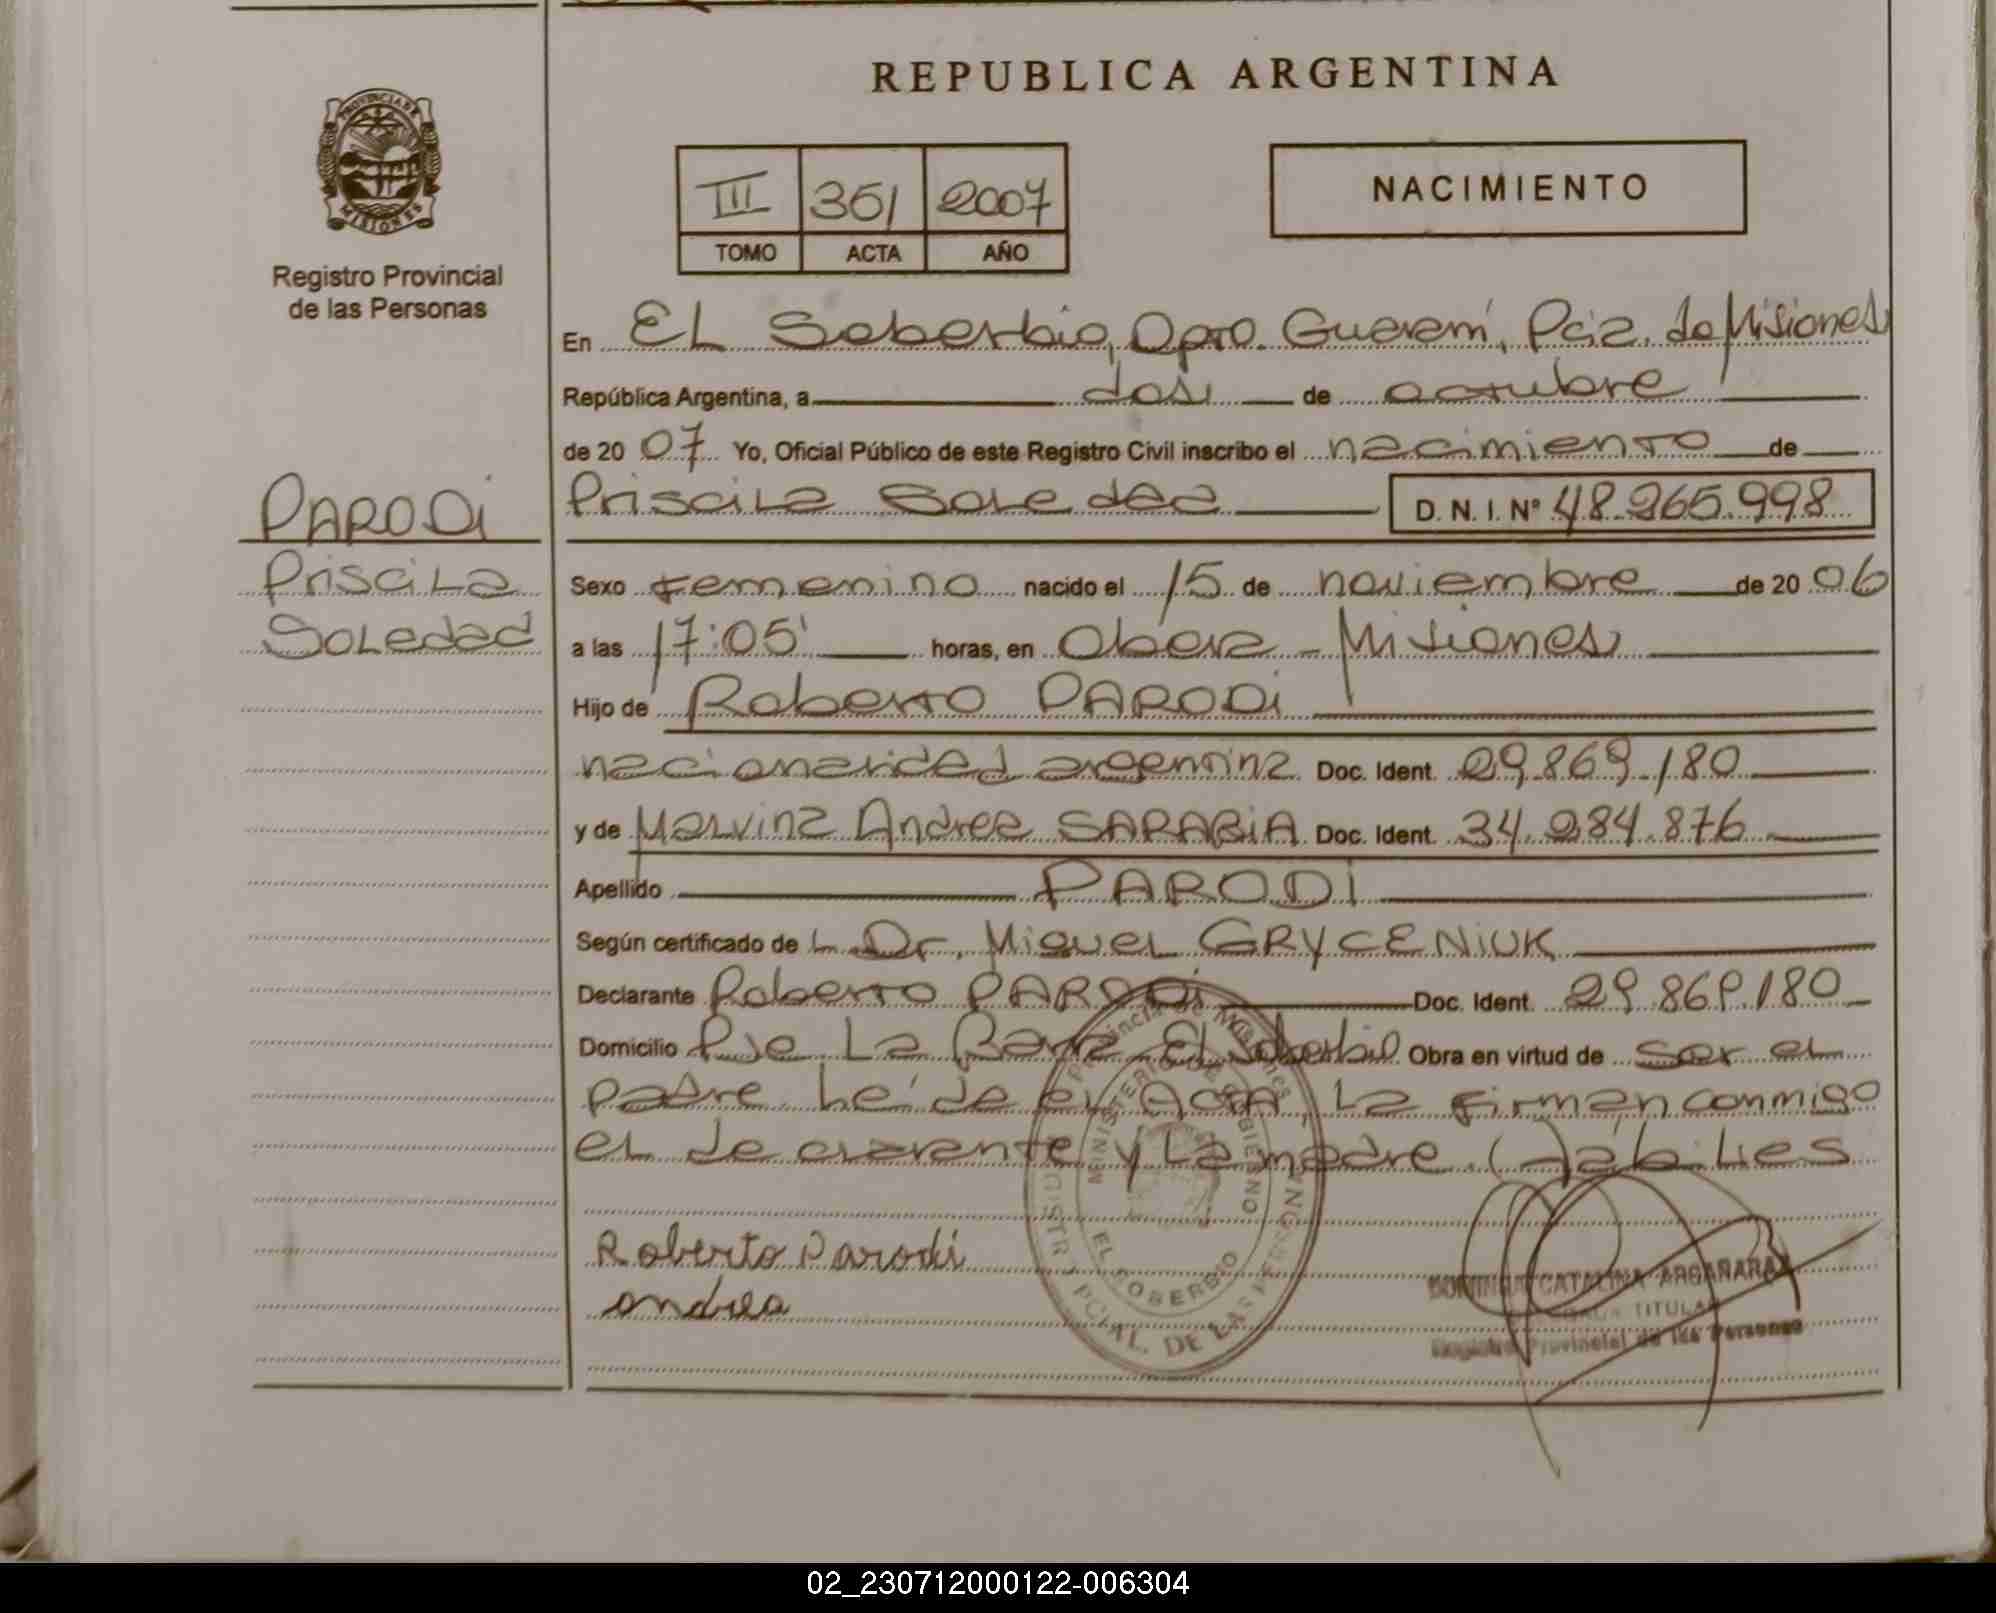 REPUBLICA ARGENTINA
PROVINCIA DE
MISIONES
Registro Provincial
de las Personas
III 351 2007
TOMO ACTA AÑO
NACIMIENTO
En EL Soberbio, Dpto. Guaraní, Pcia. de Misiones
República Argentina, a dos de octubre
de 2007 Yo, Oficial Público de este Registro Civil inscribo el nacimiento de
Priscila Soledad D. N. I. N° 48.265.998
PARODi
Priscila
Soledad
Sexo Femenino nacido el 15 de noviembre de 2006
a las 17:05' horas, en Obera - Misiones
Hijo de Roberto PARODi
nacionalidad argentina Doc. Ident. 29.869.180
y de Malvina Andrea SARABiA Doc. Ident. 34.284.876
Apellido PARODi
Según certificado de L Dr. Miguel GRYCENiUK
Declarante Roberto PARODi Doc. Ident. 29.869.180
Domicilio Pje La Barra El Soberbio Obra en virtud de ser el
padre Leída el Acta, La Firman conmigo
el declarante y La madre.
Roberto Parodi
andrea
Provincia de Misiones
MINISTERIO DE GOBIERNO
EL SOBERBIO
PCIAL. DE LAS PERSONAS
CATALINA
TITULAR
Registro Provincial de las Personas
02_230712000122-006304